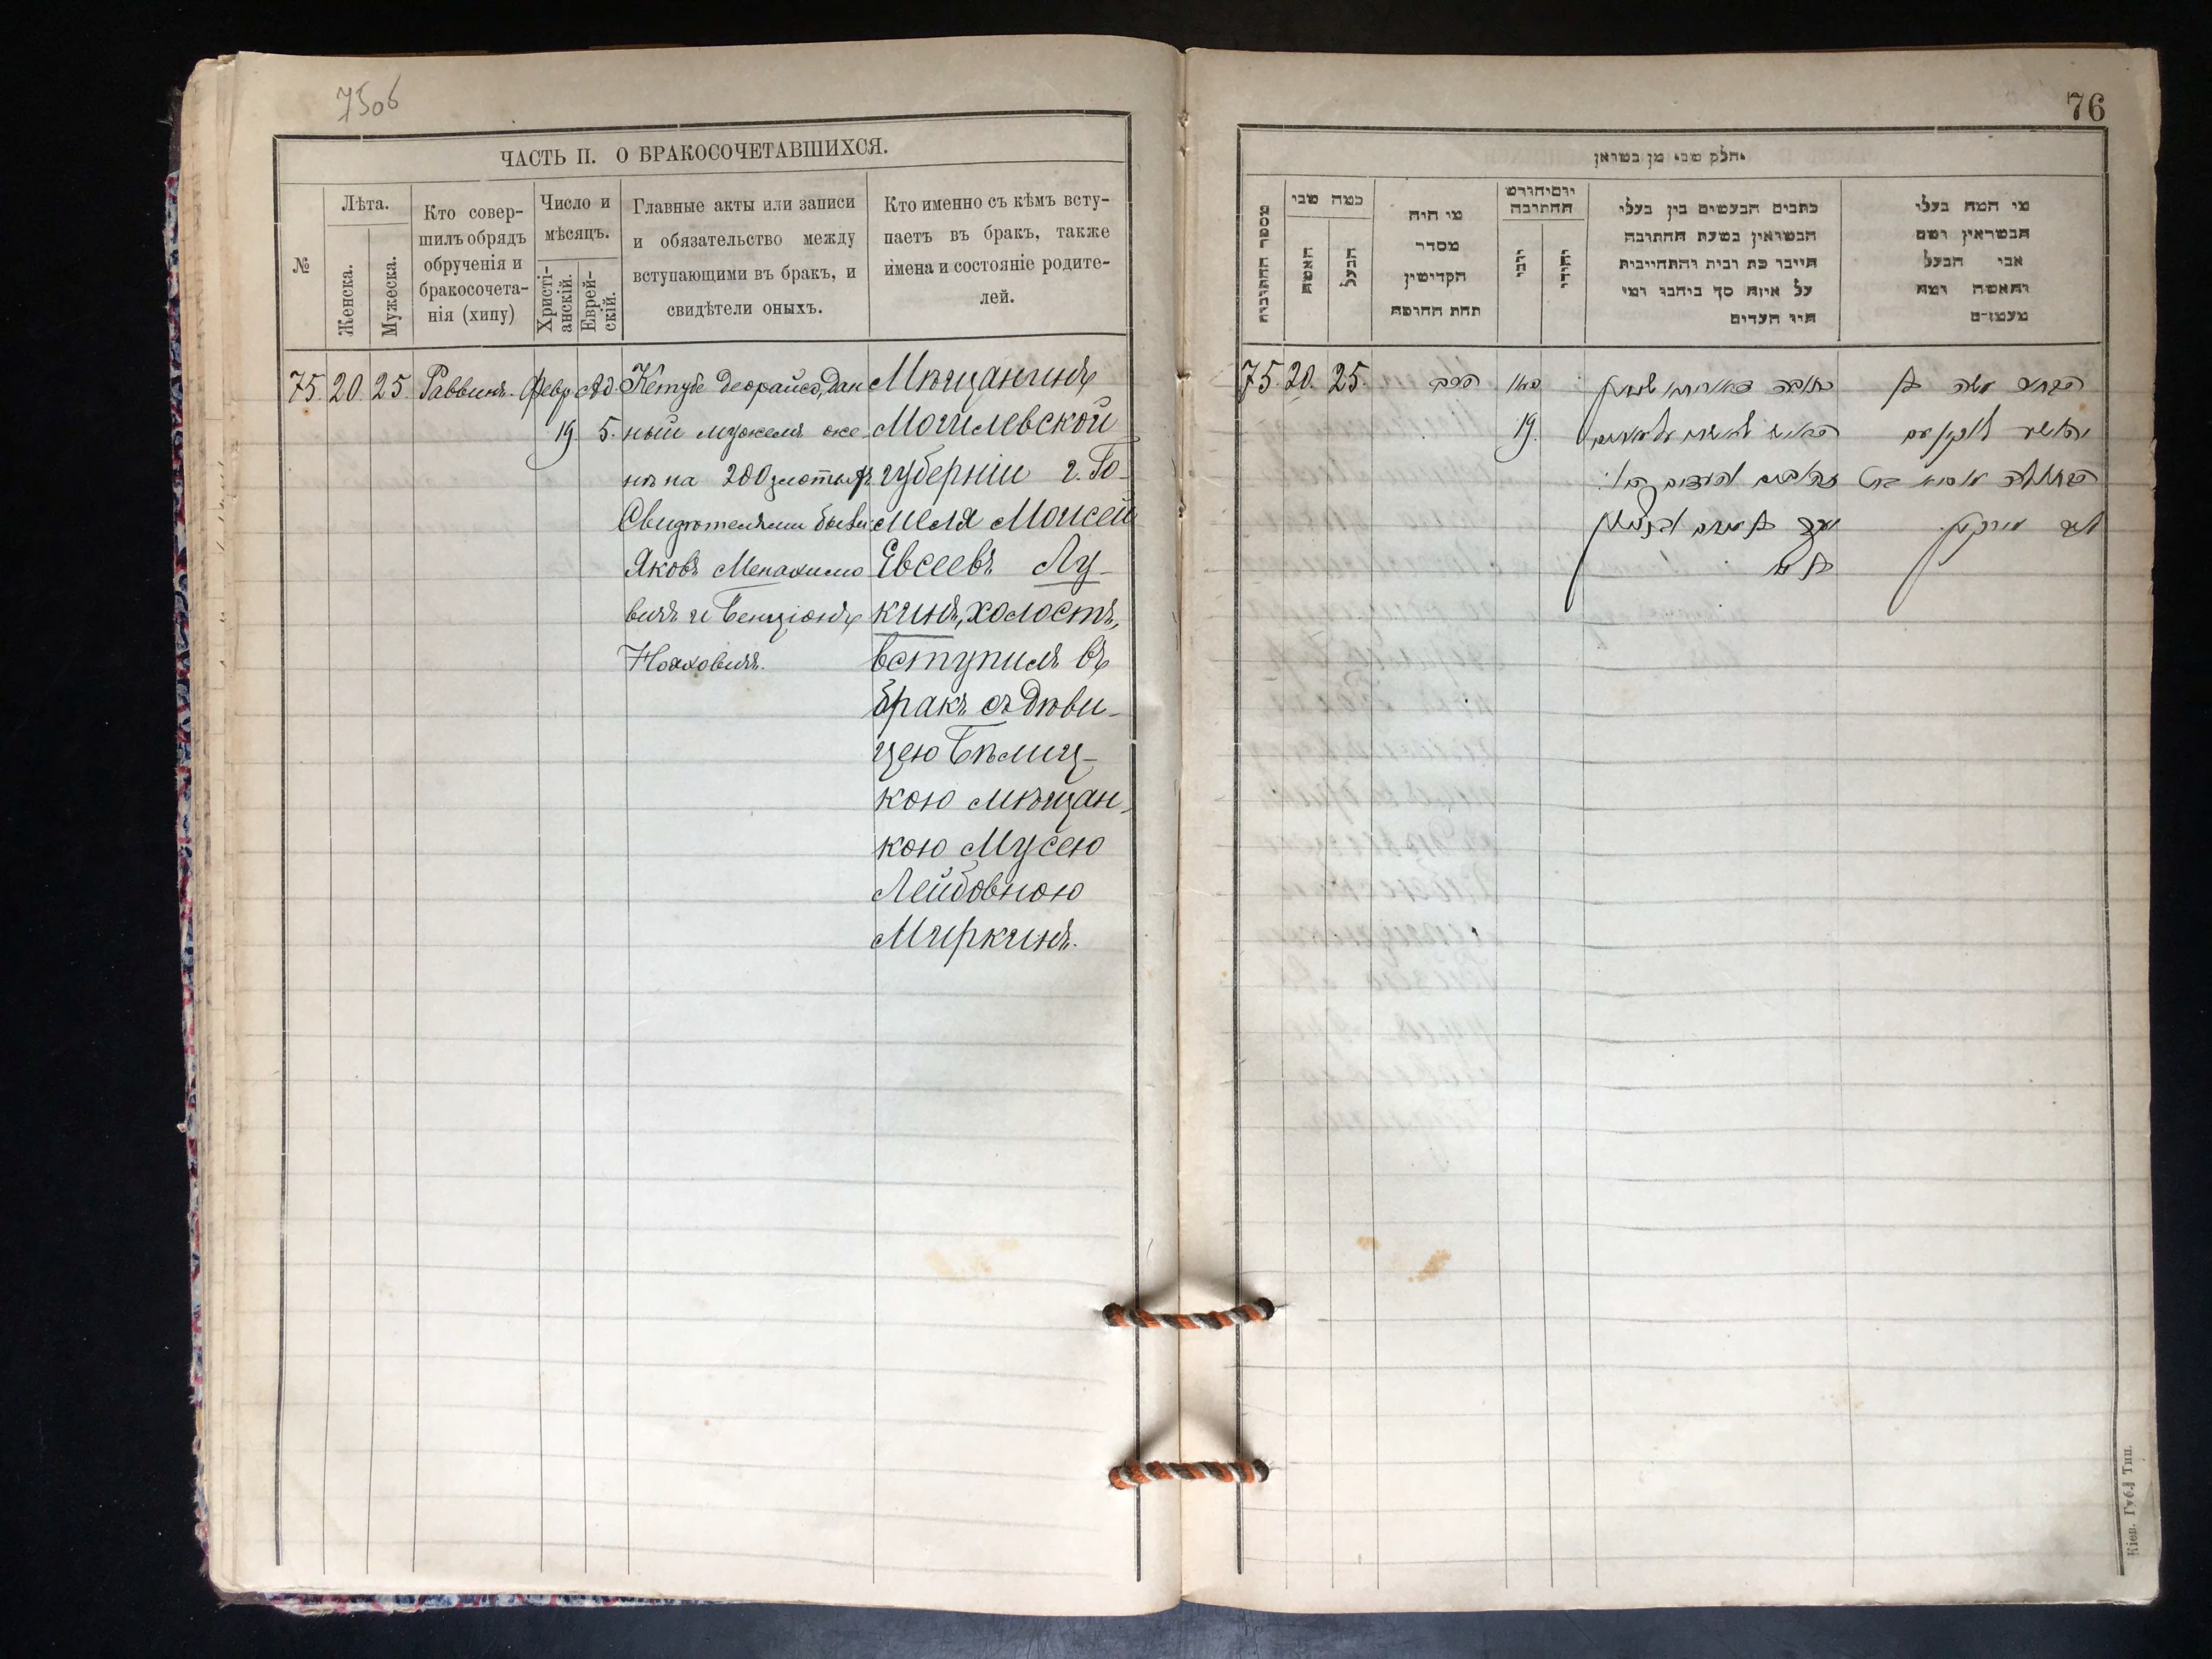 75 об
ЧАСТЬ II. О БРАКОСОЧЕТАВШИХСЯ.
№
Лѣта.
Женска.
Мужеска.
Кто совер-
шилъ обрядъ
обрученія и
бракосочета-
нія (хипу)
Число и
мѣсяцъ.
Христі-
анскій.
Еврей-
скій.
Главные акты или записи
и обязательство между
вступающими въ бракъ, и
свидѣтели оныхъ.
Кто именно съ кѣмъ всту-
паетъ въ бракъ, также
имена и состояніе родите-
лей.
75. 20. 25. Раввинъ. Февр. Ад.
19. 5.
Кетубе Деорайсо, дан
ный мужемъ же-
нѣ на 200 злотыхъ
Свидѣтелями были:
Яковъ Менахимо
вичъ и Бенціонъ
Ноаховичъ.
Мѣщанинъ
Могилевской
губерніи г. Го-
меля Моисей
Евсеевъ Лу-
кинъ, холостъ,
вступилъ въ
бракъ съ дѣви-
цею Бѣлиц-
кою мѣщан-
кою Мусею
Лейбовною
Миркинъ.
76
מספר החתובות
כמה שני
האשה
הבעל
מי היה
מסדר
הקדישין
תחת החופה
יום וחודש
החתובה
נוצרי
יהודי
כתבים הנעשים בין בעלי
הנשואין בשעת החתובה
על איזה סך ביחבו ומי
היו העדים
מי המה בעלי
הנשואין ושם
אבי הבעל
והאשה ומה
מעמדם
75. 20. 25. הרב
19.
הבחור משה בן
לוקין עם
הבתולה מוסיא בת
ליב מירקין
Кіев. Губ. Тип.